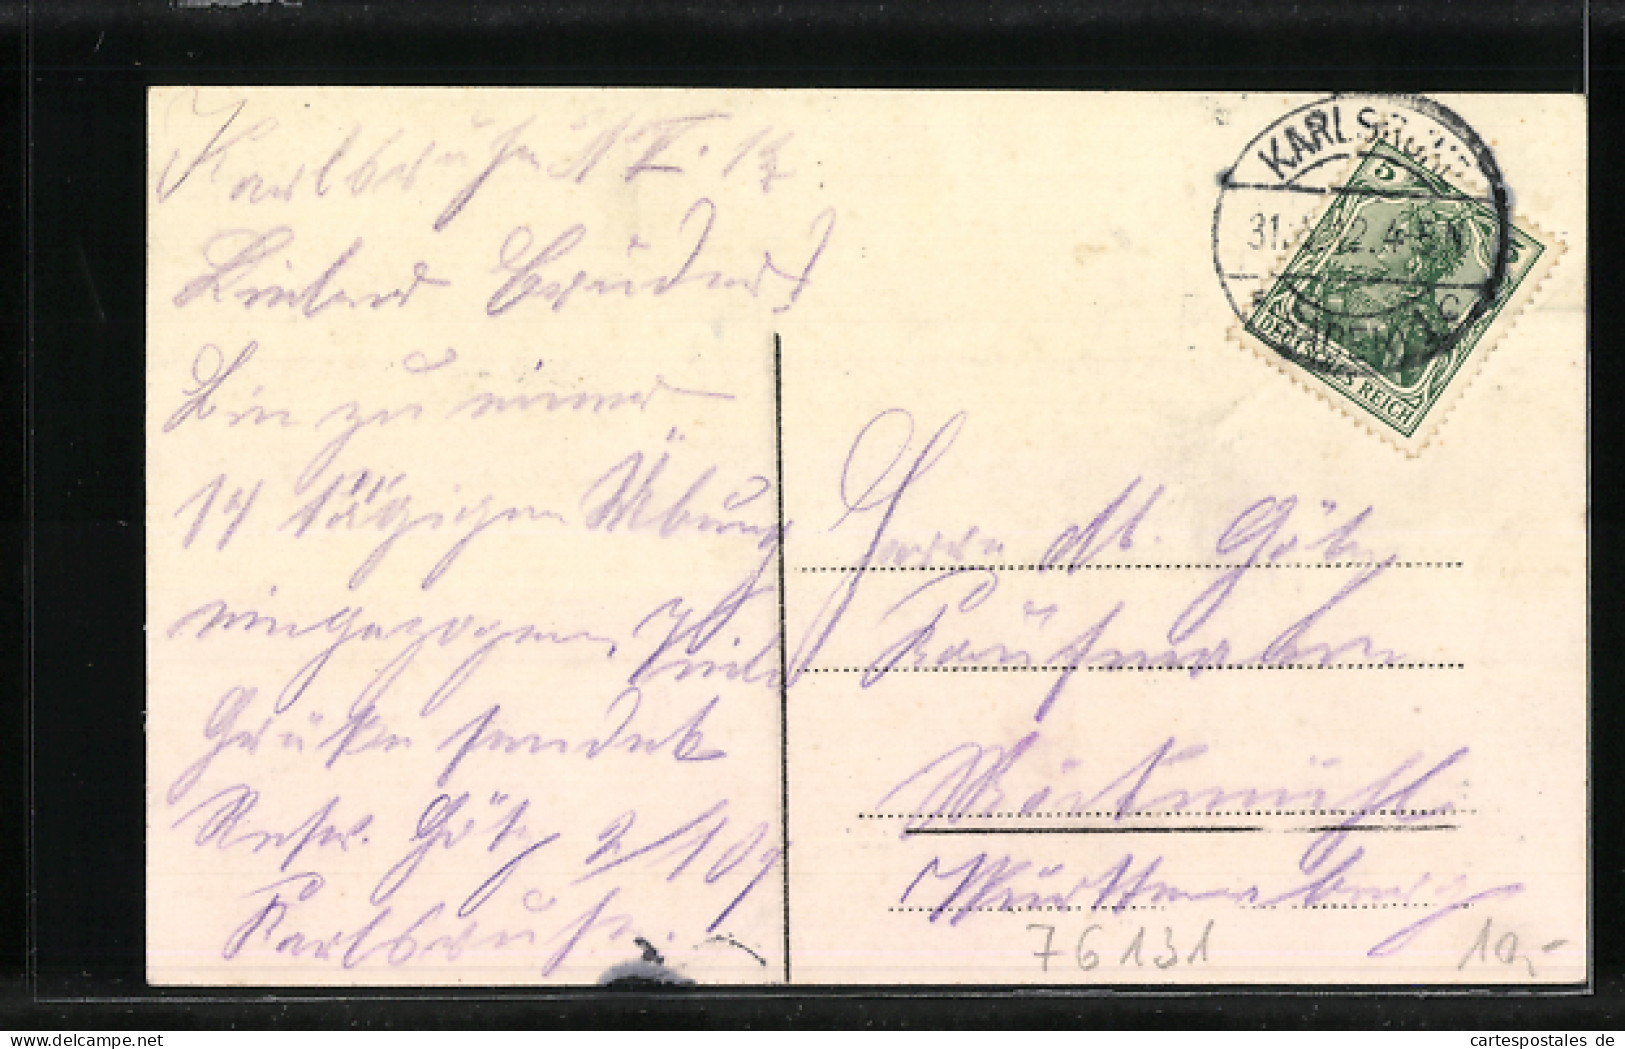 Karlsruhe 31. V. 12
Lieber Bruder!
Bin zu einer
14 tägigen Übung
eingezogen. Viele
Grüße sendet
Reserv. Götz 2/109
Karlsruhe.
KARLSRUHE
31. 12. 4-5 N
BADEN 1C
5 5
DEUTSCHES REICH
Herrn M. Götz
Kaufmann
Möckmühl.
Württemberg
76131
10,-
www.cartespostales.de